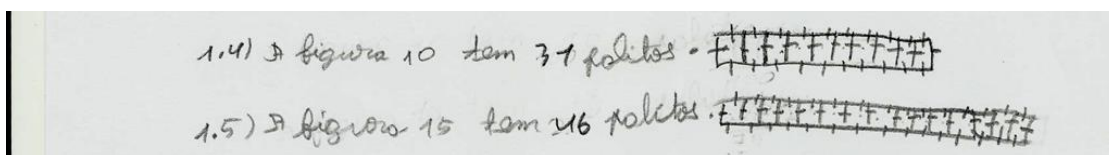 1.4) A figura 10 tem 31 palitos.
1.5) A figura 15 tem 46 palitos.